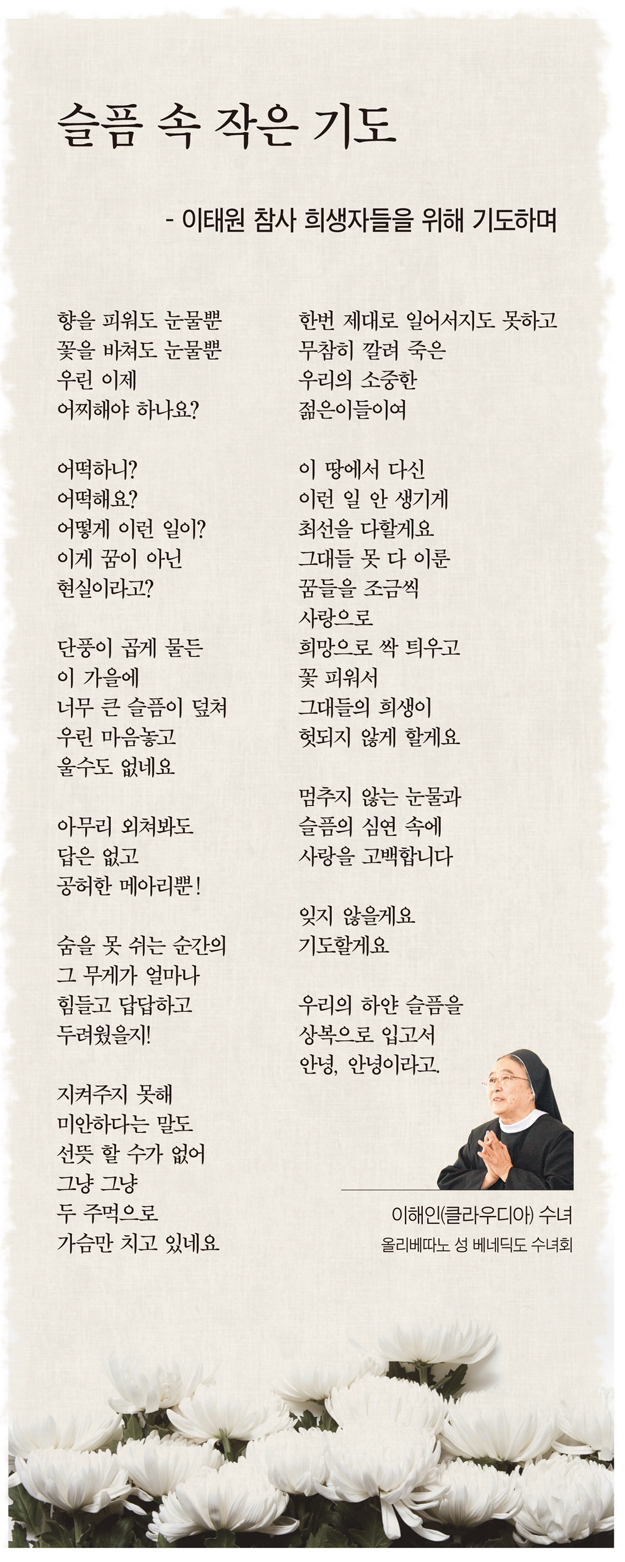 슬픔 속 작은 기도
- 이태원 참사 희생자들을 위해 기도하며
향을 피워도 눈물뿐
꽃을 바쳐도 눈물뿐
우린 이제
어찌해야 하나요?
어떡하니?
어떡해요?
어떻게 이런 일이?
이게 꿈이 아닌
현실이라고?
단풍이 곱게 물든
이 가을에
너무 큰 슬픔이 덮쳐
우린 마음놓고
울수도 없네요
아무리 외쳐봐도
답은 없고
공허한 메아리뿐!
숨을 못 쉬는 순간의
그 무게가 얼마나
힘들고 답답하고
두려웠을지!
지켜주지 못해
미안하다는 말도
선뜻 할 수가 없어
그냥 그냥
두 주먹으로
가슴만 치고 있네요
한번 제대로 일어서지도 못하고
무참히 깔려 죽은
우리의 소중한
젊은이들이여
이 땅에서 다신
이런 일 안 생기게
최선을 다할게요
그대들 못 다 이룬
꿈들을 조금씩
사랑으로
희망으로 싹 틔우고
꽃 피워서
그대들의 희생이
헛되지 않게 할게요
멈추지 않는 눈물과
슬픔의 심연 속에
사랑을 고백합니다
잊지 않을게요
기도할게요
우리의 하얀 슬픔을
상복으로 입고서
안녕, 안녕이라고.
이해인(클라우디아) 수녀
올리베따노 성 베네딕도 수녀회